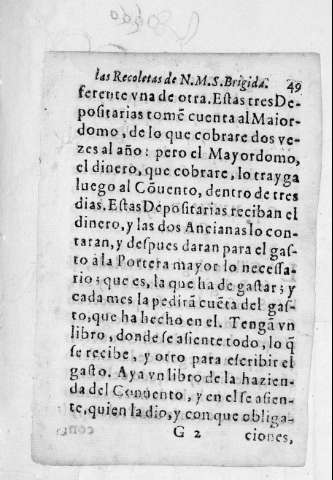 las Recoletas de N.M.S. Brigida. 49
ferente vna de otra. Estas tres De-
positarias tomē cuenta al Maior-
domo, de lo que cobrare dos ve-
zes al año: pero el Mayordomo,
el dinero, que cobrare, lo trayga
luego al Cōuento, dentro de tres
dias. Estas Depositarias reciban el
dinero, y las dos Ancianas lo con-
taran, y despues daran para el gas-
to à la Portera mayor lo necessa-
rio; que es, la que ha de gastar; y
cada mes la pedirā cuēta del gas-
to, que ha hecho en el. Tengā vn
libro, donde se asiente todo, lo q̄
se recibe, y otro para escribir el
gasto. Aya vn libro de la hazien-
da del Conuento, y en el se asien-
te, quien la dio, y con que obliga-
G 2 ciones,